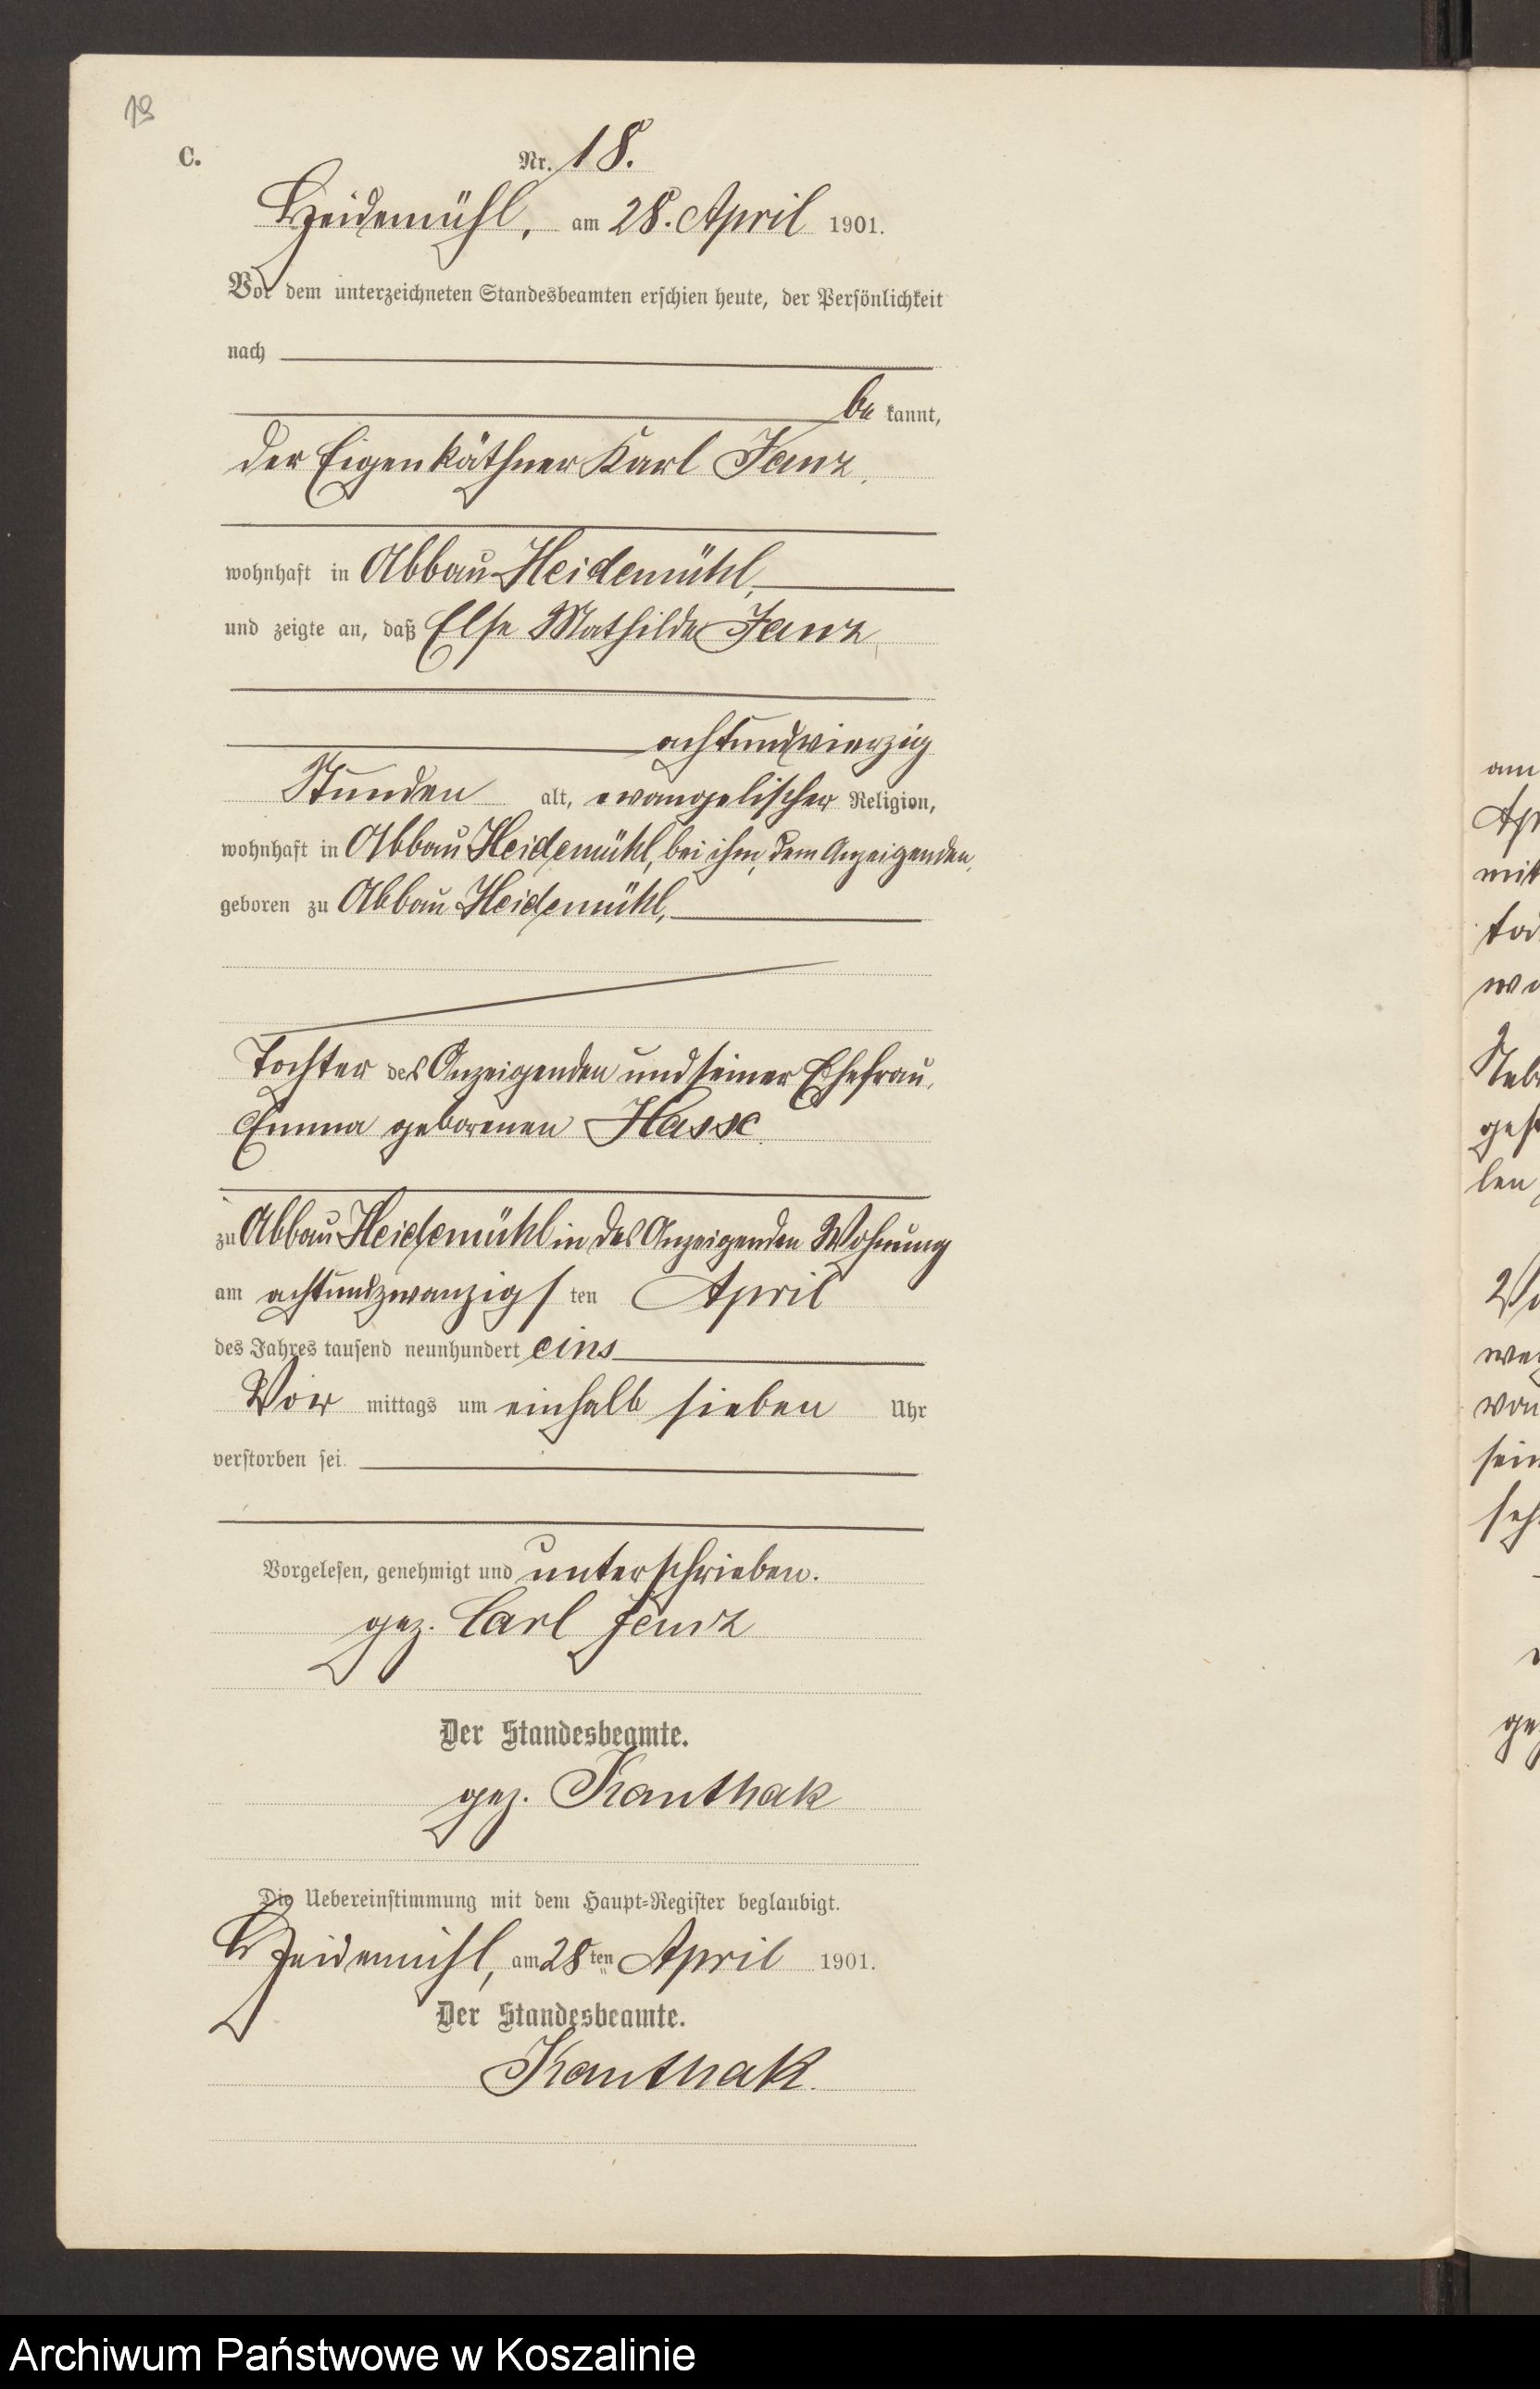 19
C.
Nr. 18.
Heidemühl, am 28. April 1901.
Vor dem unterzeichneten Standesbeamten erschien heute, der Persönlichkeit
nach
be kannt,
der Eigenkäthner Karl Janz,
wohnhaft in Abbau Heidemühl,
und zeigte an, daß Else Mathilde Janz,
achtundvierzig
Stunden alt, evangelischer Religion,
wohnhaft in Abbau Heidemühl, bei ihm, dem Anzeigenden,
geboren zu Abbau Heidemühl,
Tochter des Anzeigenden und seiner Ehefrau,
Emma geborenen Hasse
zu Abbau Heidemühl in des Anzeigenden Wohnung
am achtundzwanzigs ten April
des Jahres tausend neunhundert eins
Vor mittags um einhalb sieben Uhr
verstorben sei.
Vorgelesen, genehmigt und unterschrieben.
gez. Carl Janz
Der Standesbeamte.
gez. Kanthak
Die Uebereinstimmung mit dem Haupt-Register beglaubigt.
Heidemühl, am 28ten April 1901.
Der Standesbeamte.
Kanthak.
am
Apr
mit
wo
Neb
gest
len
Vo
von
sein
Archiwum Państwowe w Koszalinie